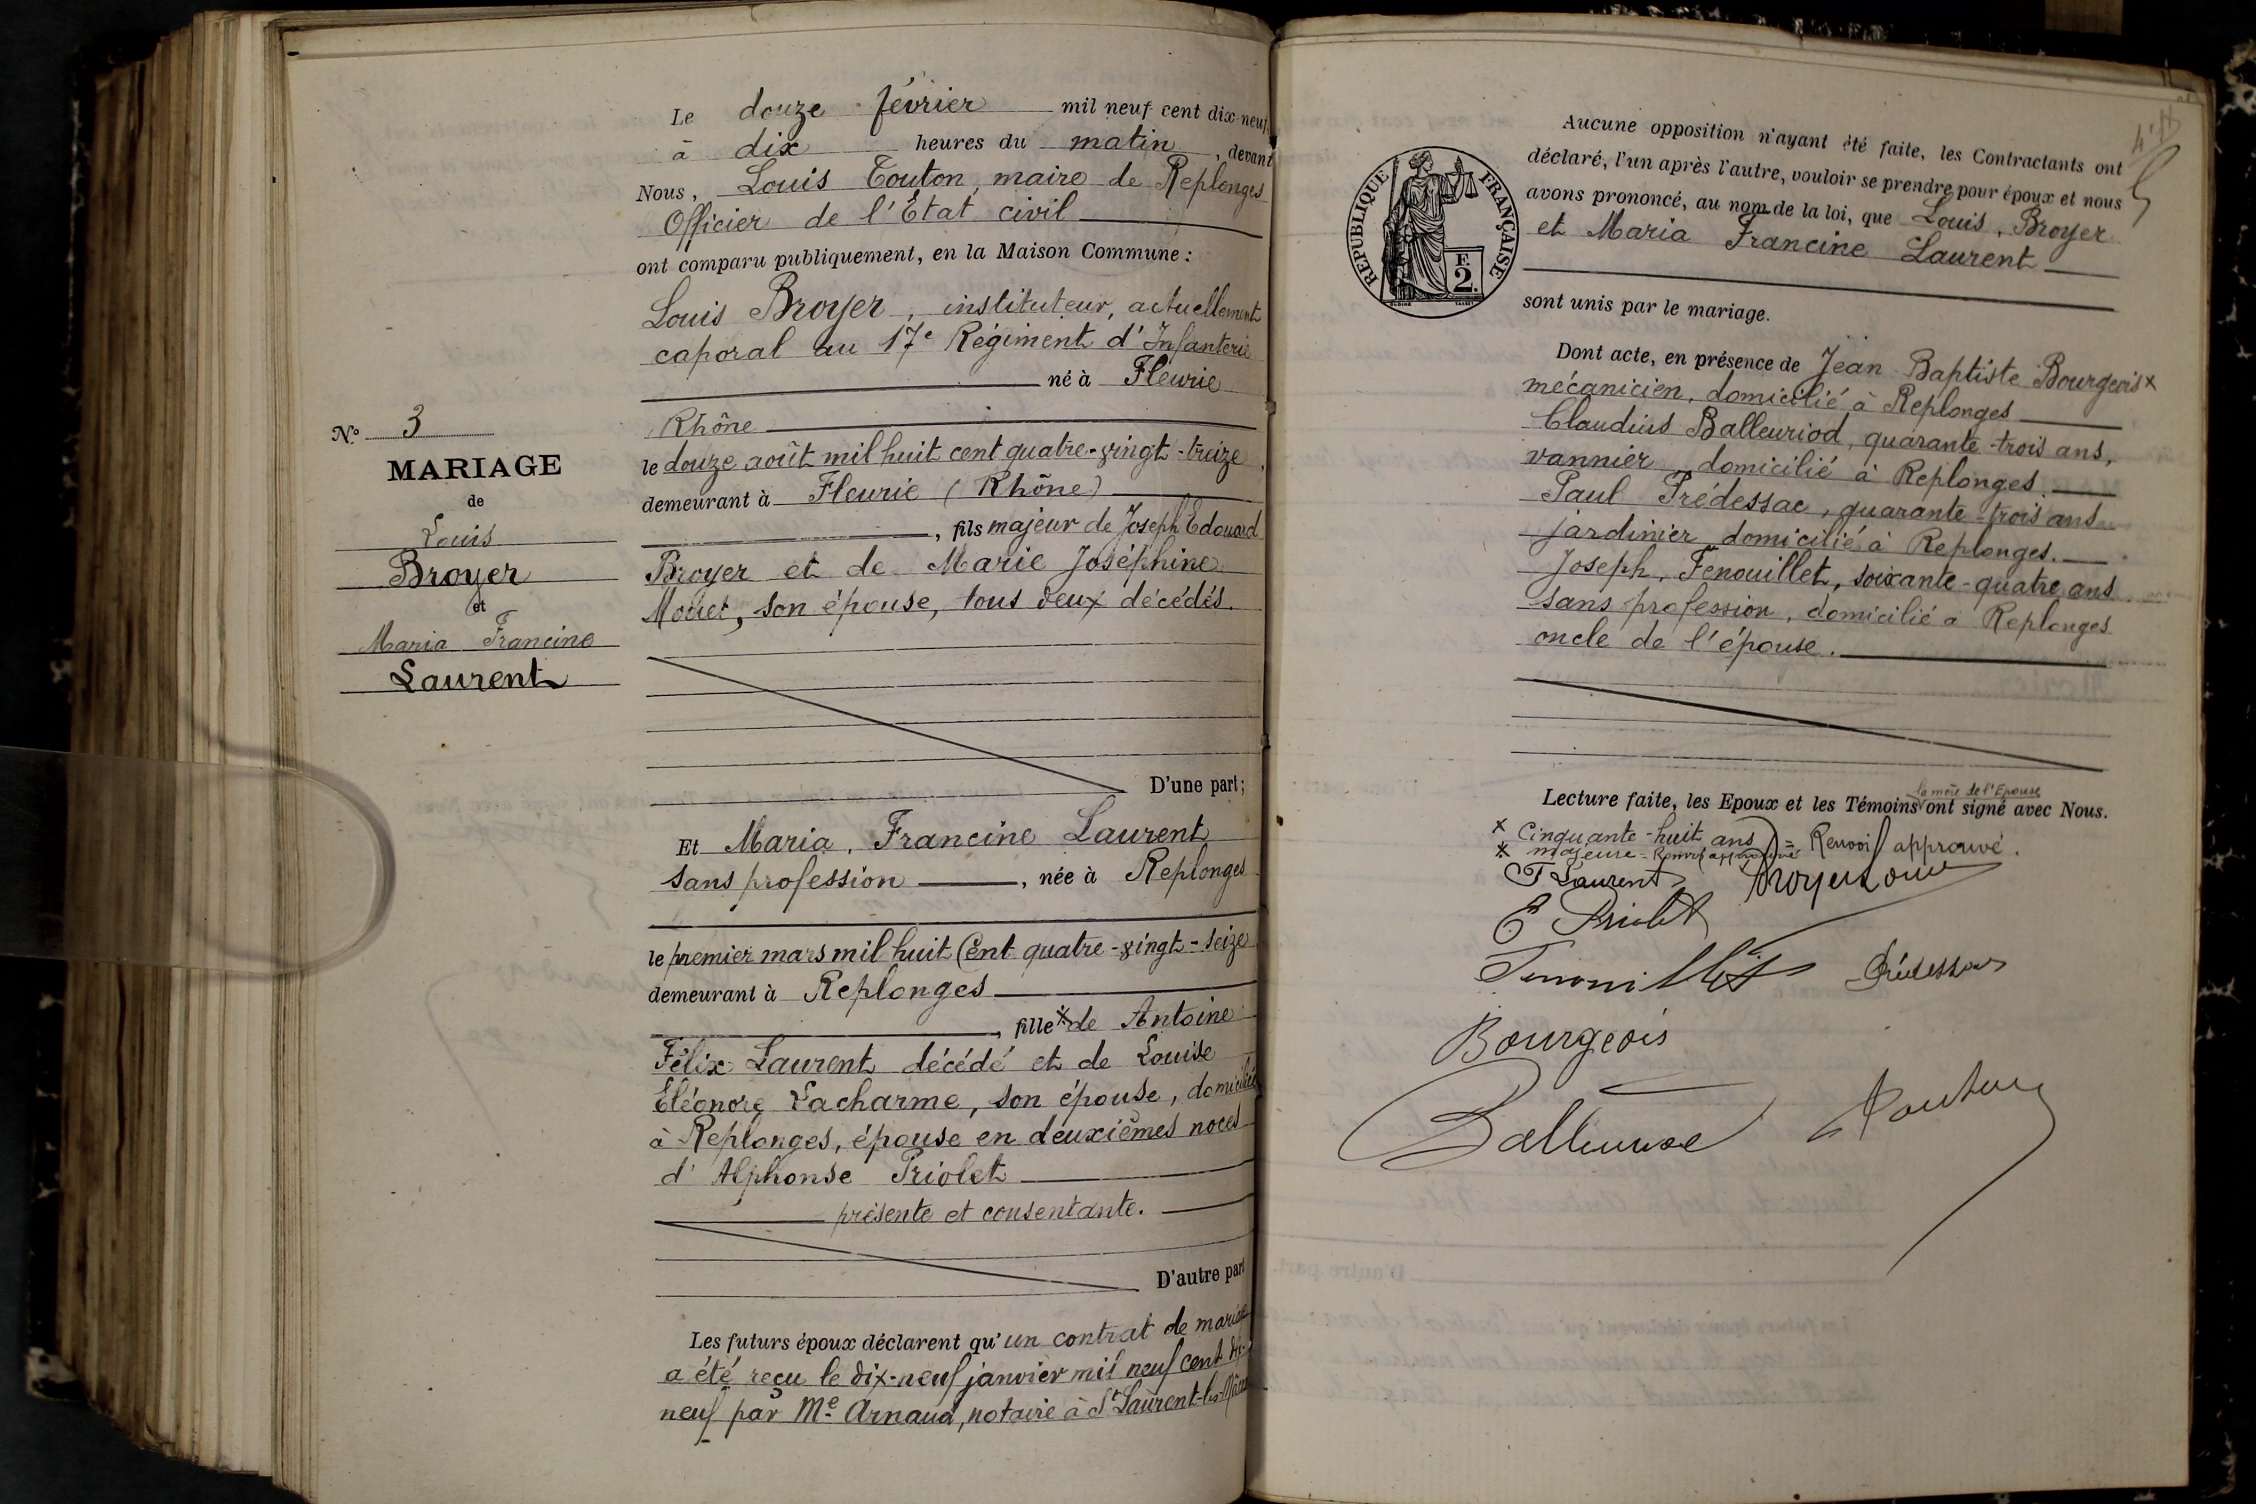 Le douze février mil neuf cent dix-neuf
à dix heures du matin, devant
Nous, Louis Touton, maire de Replonges
Officier de l'Etat civil
ont comparu publiquement, en la Maison Commune :
Louis Broyer, instituteur, actuellement
caporal au 17e Régiment d'Infanterie
né à Fleurie
Rhône
le douze août mil huit cent quatre-vingt-treize,
demeurant à Fleurie (Rhône)
, fils majeur de Joseph Edouard
Broyer et de Marie Joséphine
son épouse, tous deux décédés.
D'une part;
Et Maria, Francine Laurent
sans profession, née à Replonges
le premier mars mil huit Cent quatre-vingt-seize
demeurant à Replonges
, fille * de Antoine
Félix Laurent décédé et de Louise
Eléonore Lacharme, son épouse, domiciliée
à Replonges, épouse en deuxièmes noces
d'Alphonse Priolet
présente et consentante.
D'autre part
Les futurs époux déclarent qu'un contrat de mariage
a été reçu le dix-neuf janvier mil neuf cent dix-
neuf par Me Arnaud, notaire à St Laurent-les-Mâcon
No 3
MARIAGE
de
Louis
Broyer
et
Maria Francine
Laurent
REPUBLIQUE FRANÇAISE
F.
2.
Aucune opposition n'ayant été faite, les Contractants ont
déclaré, l'un après l'autre, vouloir se prendre pour époux et nous
avons prononcé, au nom de la loi, que Louis, Broyer
et Maria Francine Laurent
sont unis par le mariage.
Dont acte, en présence de Jean Baptiste Bourgeois x
mécanicien, domicilié à Replonges
Claudius Balleuriod, quarante-trois ans,
vannier, domicilié à Replonges.
Paul Prédessac, quarante-trois ans
jardinier domicilié à Replonges.
Joseph, Fenouillet, soixante-quatre ans
sans profession, domicilié à Replonges
oncle de l'épouse.
la mère de l'Epouse
Lecture faite, les Epoux et les Témoins ont signé avec Nous.
x Cinquante-huit ans = Renvoi approuvé.
* majeure = Renvoi approuvé
F Laurent Broyer Louis
E Priolet
Fenouillet Prédessac
Bourgeois
Balleuriod Touton